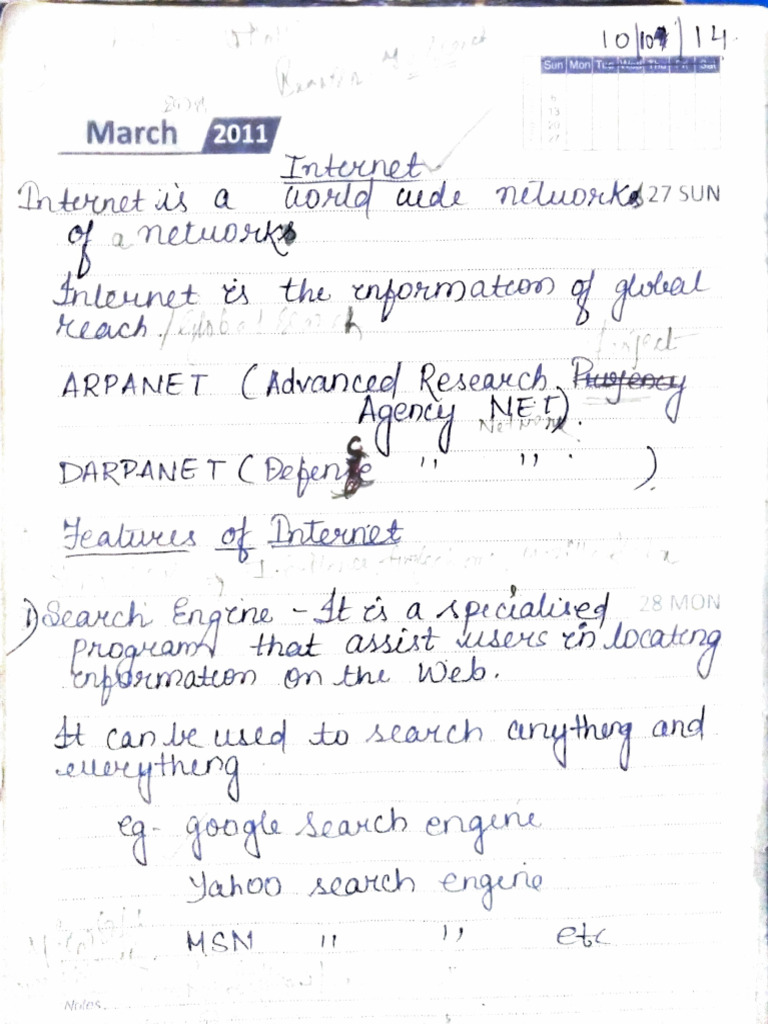 10/10/14
Sun Mon Tue Wed Thu Fri Sat
March 2011
Internet
Internet is a world wide networks 27 SUN
of a networks
Internet is the information of global
reach.
Project
ARPANET (Advanced Research Projency
Agency NET).
Network
DARPANET (Defence " " . )
Features of Internet
1) Search Engine - It is a specialised 28 MON
program that assist users in locating
information on the Web.
It can be used to search anything and
everything
eg- google search engine
Yahoo search engine
MSN " " etc
Notes